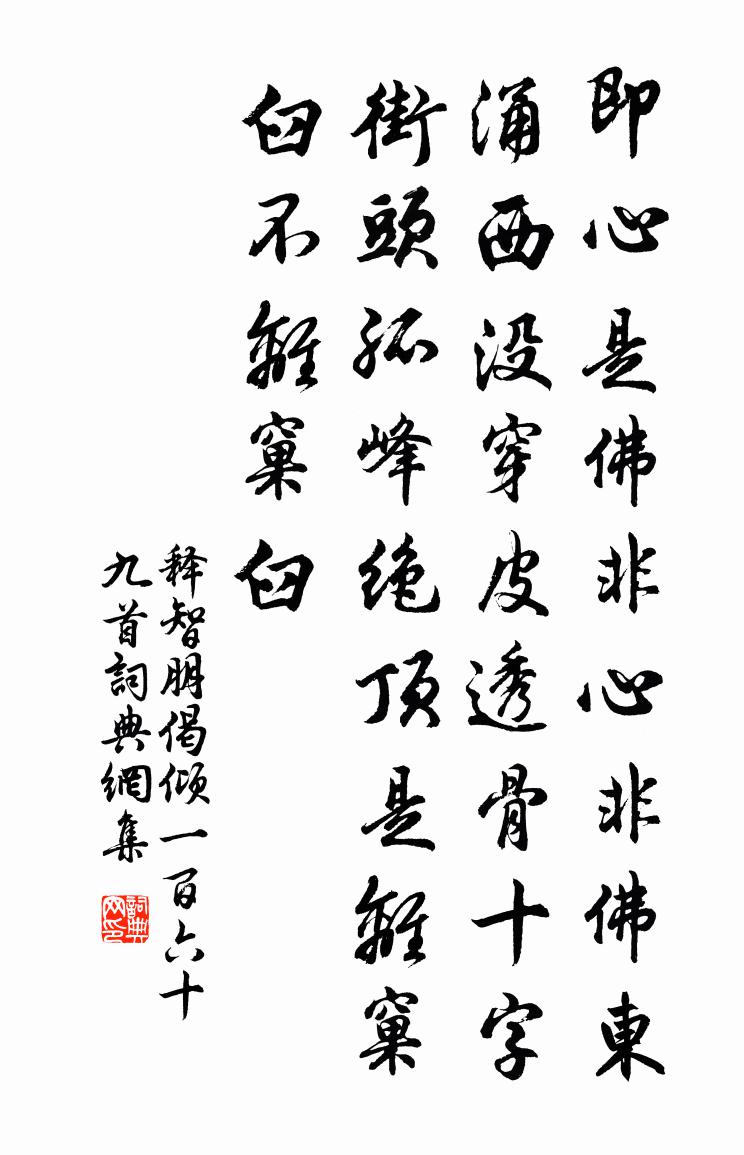 即心是佛非心非佛東
涌西没穿皮透骨十字
街頭孤峰绝頂是離窠
臼不離窠臼
释智朋偈倾一百六十
九首詞典網集
詞典
网印